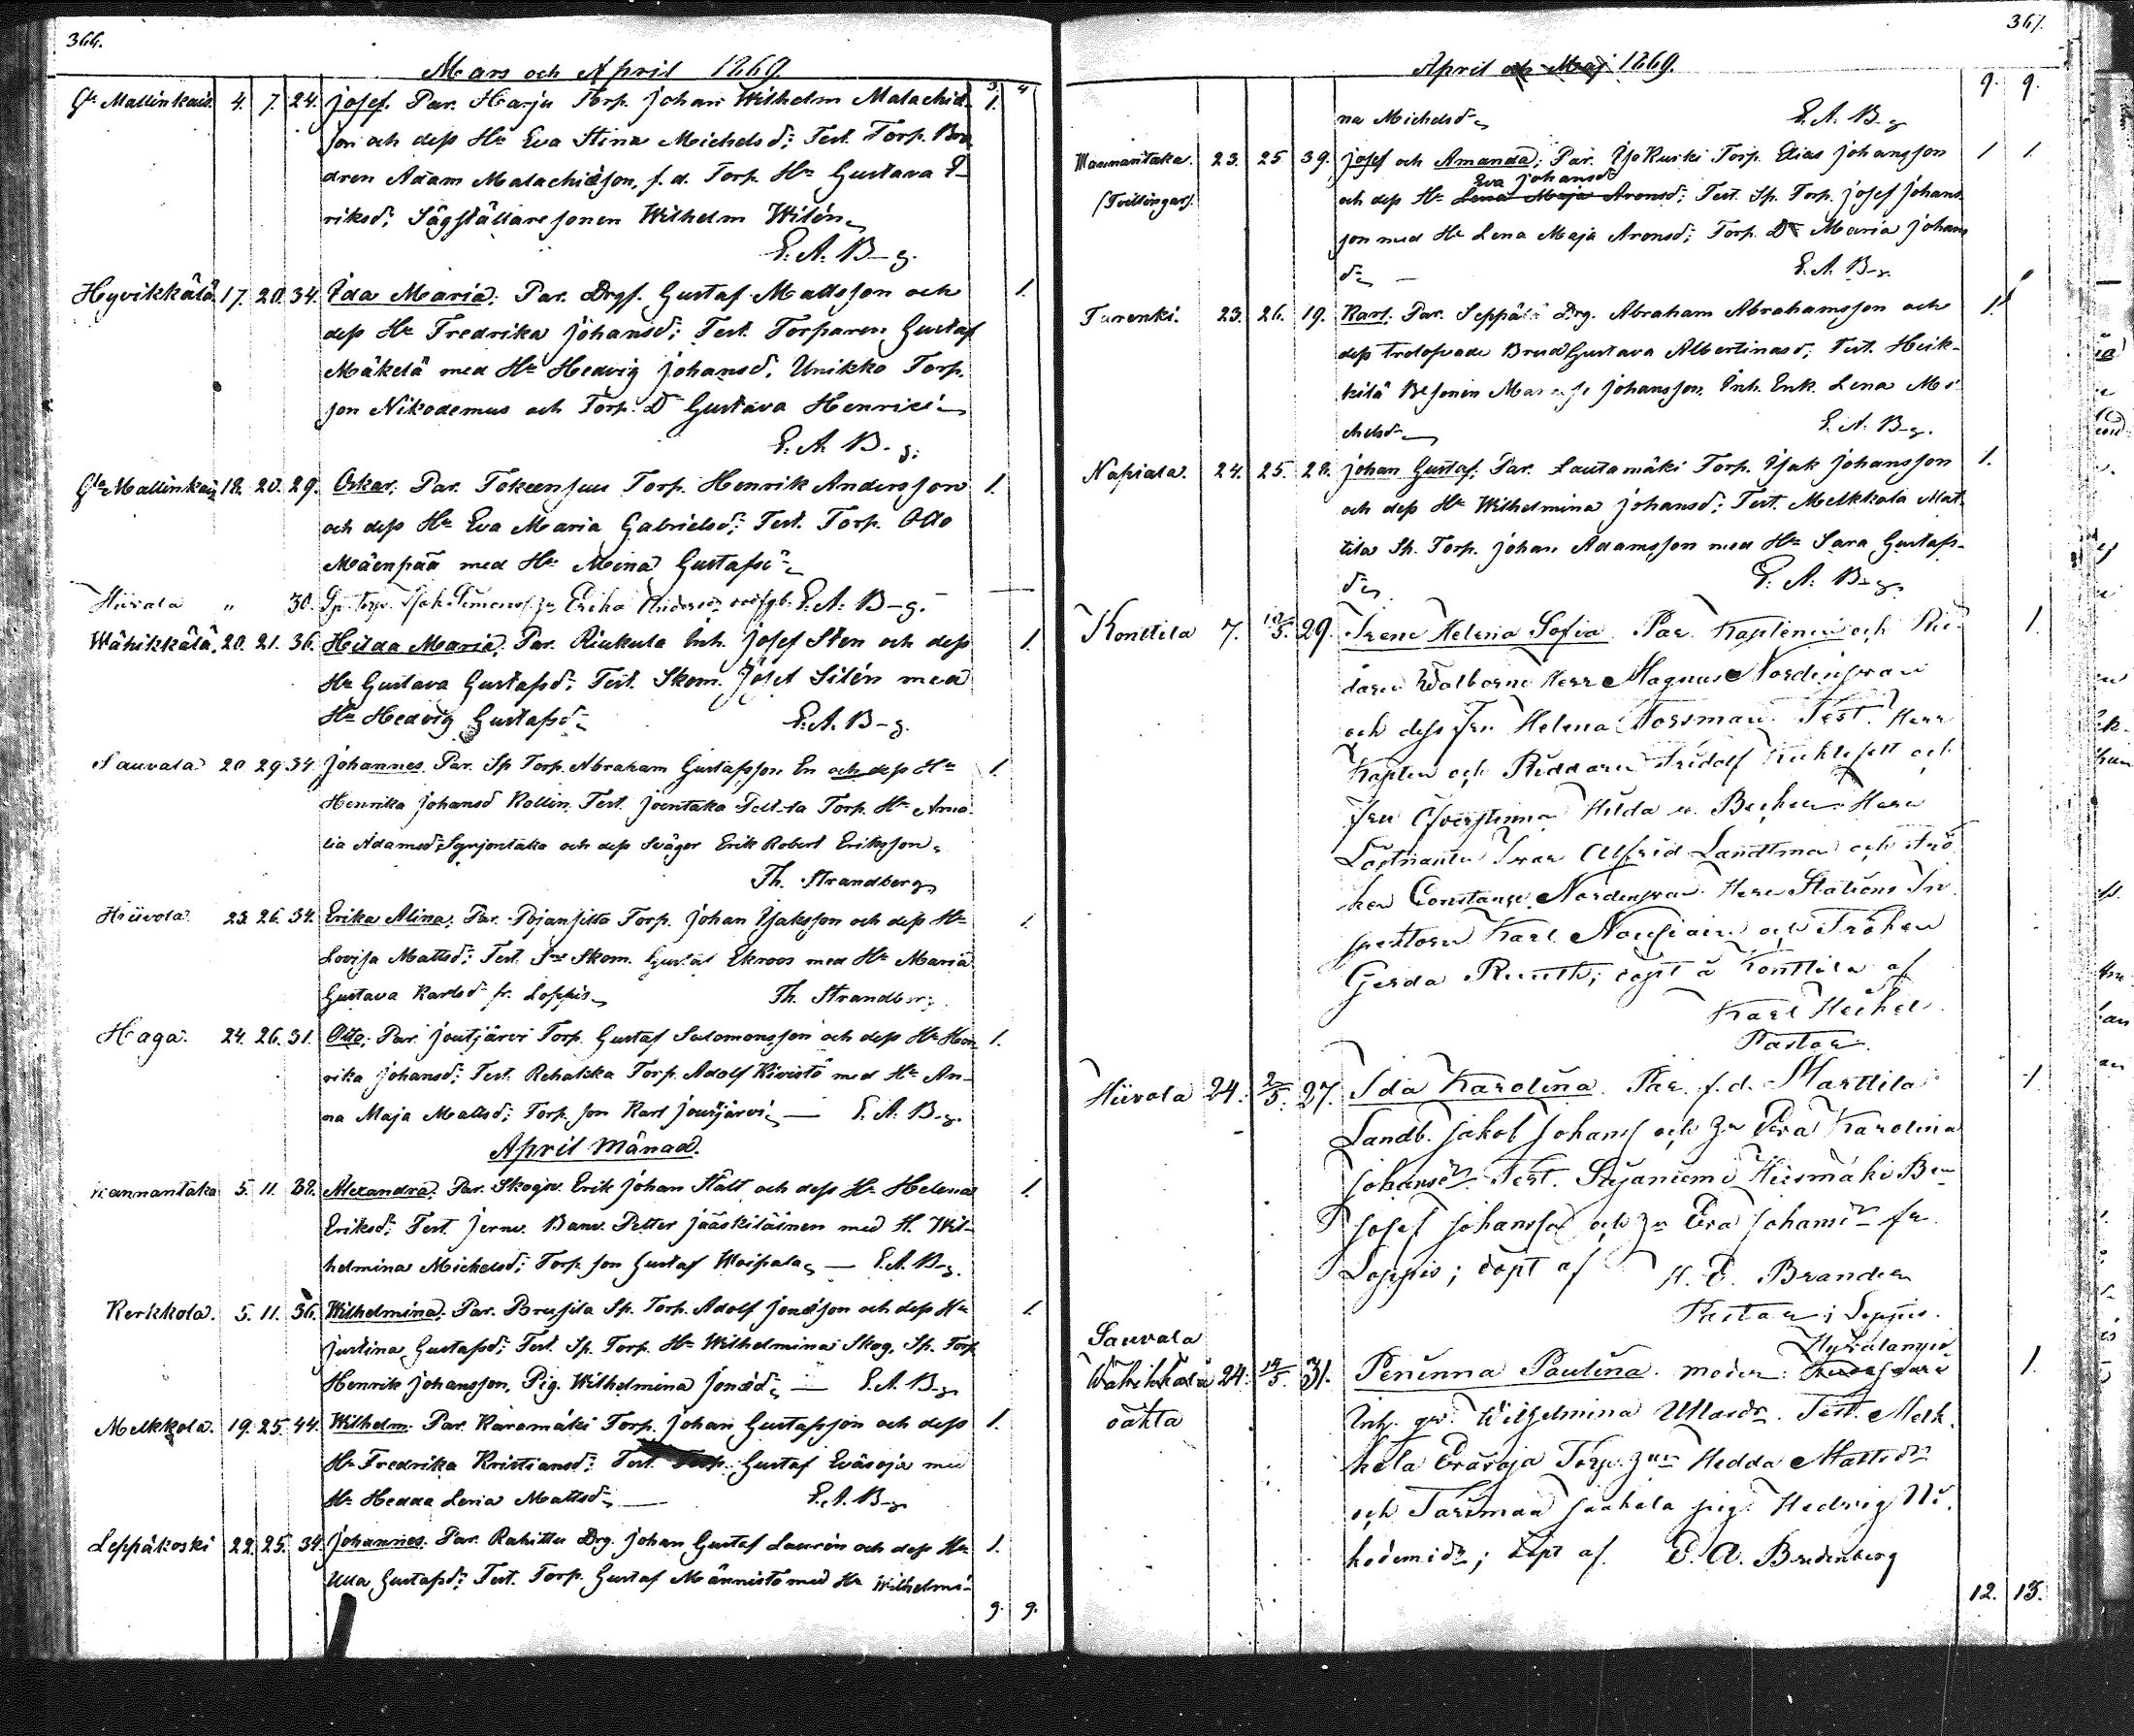 366.
Mars och April 1869.
3. 4
Gla Mallinkais. 4. 7. 24. Josef. Par. Harju Torp. Johan Wilhelm Malachid- 1.
son och dess Hu Eva Stina Michelsdr; Test. Torp. Bro
dren Adam Malachidson, f.d. Torp. Hu Gustava E-
riksdr; Sågställare sonen Wilhelm Wilén
E. A. B-g.
Hyvikkälä 17. 20. 34. Ida Maria; Par. Drgs. Gustaf Mattsson och 1.
dess Hu Fredrika Johansdr; Test. Torparen Gustaf
Mäkelä med Hu Hedvig Johansd. Unikko Torp.
son Nikodemus och Torp. Dr Gustava Henrici
E. A. B-g.
Gla Mallinkais 18. 20. 29. Oskar; Par. Torp. Henrik Andersson 1.
och dess Hu Eva Maria Gabrielsdr; Test. Torp. Otto
Mäenpää med Hu Meina Gustafsdr
Hiivola " 30. Sp. Torp. Hu Erika Andersdr E. A. B-g. —
Wähikkälä. 20. 21. 36. Hilda Maria; Par. Riukula Inh. Josef Sten och dess 1.
Hu Gustava Gustafsdr; Test. Skom. Josef Silén med
Hu Hedvig Gustafsdr E. A. B-g.
Sauvala 20 29 34 Johannes. Par. Sp Torp. Abraham Gustafsson En och dess Hu 1.
Henrika Johansd Kollin. Test. Joentaka Torp. Hu Ama
lia Adamsdr Syrjentaka och dess Svåger Erik Robert Eriksson
Th. Strandberg
Hiivola. 23. 26. 34. Erika Alina; Par. Pojansilta Torp. Johan Isaksson och dess Hu 1.
Lovisa Mattsdr; Test. Skom. Gustaf Ekroos med Hu Maria
Gustava Karlsdr fr. Loppis Th. Strandberg
Haga. 24. 26. 31. Otto; Par. Joutjärvi Torp. Gustaf Salomonsson och dess Hu Hen- 1.
rika Johansdr; Test. Rehakka Torp. Adolf Kivistö med Hu An-
na Maja Mattsd; Torp. son Karl Joutjärvi — E. A. B-g.
April Månad.
Wannantaka 5. 11. 38. Alexandra; Par. Skogv. Erik Johan Stålt och dess Hu Helena 1.
Eriksdr; Test. Jernv. Banv. Petter Jääskiläinen med H. Wil-
helmina Michelsd; Torp son Gustaf Woipala — E. A. B-g.
Kerkkola. 5. 11. 36. Wilhelmina; Par. Prusila Sp. Torp. Adolf Jonasson och dess Hu 1.
Justina Gustafsdr; Test. Sp. Torp. Hu Wilhelmina Skog, Sp. Torp.
Henrik Johansson, Pig. Wilhelmina Jonasd — E. A. B-g.
Melkkola. 19. 25. 44. Wilhelm. Par. Karamäki Torp. Johan Gustafsson och dess 1.
Hu Fredrika Kristiansd; Test. Torp. Gustaf Eväsoja med
Hu Hedda Lena Mattsdr — E. A. B-g.
Leppäkoski 22. 25. 34. Johannes. Par. Rahittu Drg. Johan Gustaf Laurén och dess Hu 1.
Ulla Gustafsd; Test. Torp. Gustaf Männistö med Hu Wilhelmi-
9. 9.
367.
April och Maj 1869.
9. 9.
na Michelsdr E. A. B-g
Wannantaka. 23. 25. 39. Josef och Amanda; Par. Iso Kurki Torp. Elias Johansson 1 1.
(Tvillingar). och dess Hu Lena Maja Aronsd; Eva Johansdr Test. Sp. Torp. Josef Johans-
son med Hu Lena Maja Aronsd; Torp. Dr Maria Johans
dr — E. A. B-g.
Turenki. 23. 26. 19. Karl. Par. Seppälä Drg. Abraham Abrahamsson och 1.
dess trolofvade Brud Gustava Albertinasdr; Test. Heik-
kilä Johansson, Inh. Enk. Lena Mi
chelsdr E. A. B-g.
Napiala. 24. 25. 28. Johan Gustaf; Par. Lautamäki Torp. Isak Johansson 1.
och dess Hu Wilhelmina Johansd; Test. Melkkola Mat-
tila Sp. Torp. Johan Adamsson med Hu Sara Gustafs-
dr E. A. B-g.
Konttila 7. 10/5. 29. Irene Helena Sofia. Par. Kaptenen och Rid- 1.
daren Walborne Herr Magnus Nordenswan
och dess Fru Helena Forsman. Test. Herr
Kapten och Riddaren Fridolf och
Fru Öfverstinnan Hilda v. Becker, Herr
Löjtnanten Ivar Alfrid Landtman och Frö
ken Constance Nordenswan. Herr Stations In
spektoren Karl och Fröken
Gerda Reuth; döpt å Konttila af
Karl Heikel.
Pastor.
Hiivola 24. 2/5. 27. Ida Karolina. Par. f.d. Marttila 1.
Landb. Jakob Johanss och Hu Eva Karolina
Johansdr. Test. Hiismäki Bn
Josef Johansson och Hu Eva Johansdr fr.
Loppis; döpt af H. E. Brander
Pastor i Loppis.
Sauvala
Wähikkälä 24. 14/5. 31. Penunna Paulina. moder: 1.
Inh. qv. Wilhelmina Ullasdr. Test. Melk
kola Eväsoja Torp. Hu Hedda Mattsdr
och Tarimaa Jaakola pig. Hedvig Ni
kodemidr; döpt af. E. A. Bredenberg
12. 13.